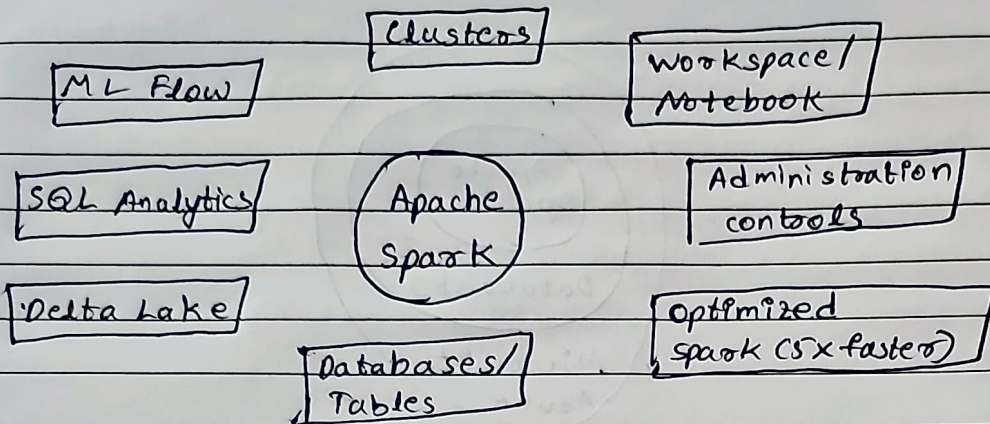 Clusters
ML Flow
Workspace/
Notebook
SQL Analytics
Apache
Spark
Administration
controls
Delta Lake
Optimized
Spark (5x faster)
Databases/
Tables